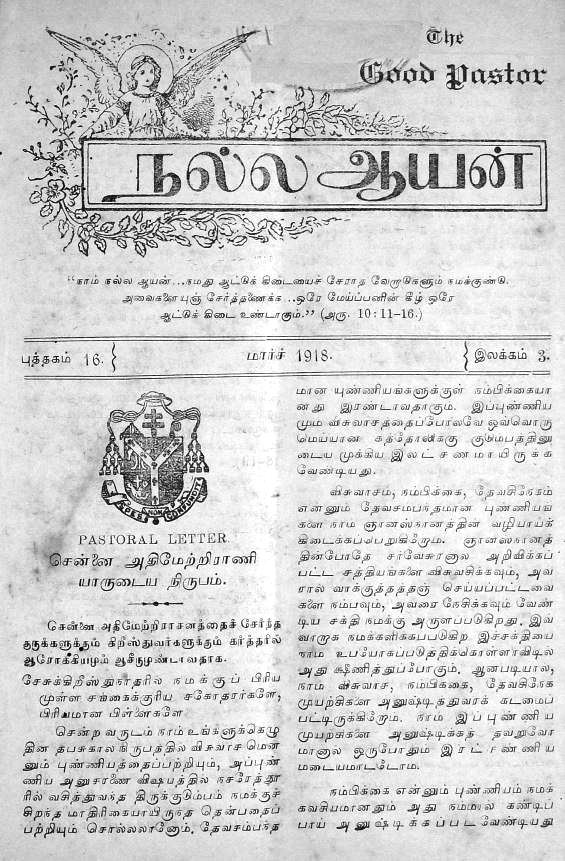 The
Good Pastor
நல்ல ஆயன்
"நாம் நல்ல ஆயன்...நமது ஆட்டுக் கிடையைச் சேராத வேறாடுகளும் நமக்குண்டு.
அவைகளை யுஞ் சேர்த்தணைக்க...ஒரே மேய்ப்பனின் கீழ் ஒரே
ஆட்டுக் கிடை உண்டாகும்." (அரு. 10:11-16.)
புத்தகம் 16.
மார்ச் 1918.
இலக்கம் 3.
SPES NON CONFUNDIT
PASTORAL LETTER.
சென்னை அதிமேற்றிராணி
யாருடைய நிருபம்.
சென்னை அதிமேற்றிராசனத்தைச் சேர்ந்த
குருக்களுக்கும் கிறீஸ்துவர்களுக்கும் கர்த்தரில்
ஆரோக்கியமும் ஆசீருமுண்டாவதாக.
சேசுக்கிறீஸ்துநாதரில் நமக்குப் பிரிய
முள்ள சங்கைக்குரிய சகோதரர்களே,
பிரியமான பிள்ளைகளே
சென்ற வருடம் நாம் உங்களுக்கெழு
தின தபசுகால நிருபத்தில் விசுவாச மென
னும் புண்ணியத்தைப்பற்றியும், அப்புண்
ணிய அனுசரணை விஷயத்தில் நசரேத்தூ
ரில் வசித்துவந்த திருக்குடும்பம் நமக்குச்
சிறந்த மாதிரிகையாயிருந்த தென்பதைப்
பற்றியும் சொல்லலானோம். தேவசம்பந்த
மான புண்ணியங்களுக்குள் நம்பிக்கையா
னது இரண்டாவதாகும். இப்புண்ணிய
மும் விசுவாசத்தைப்போலவே ஒவ்வொரு
மெய்யான கத்தோலிக்கு குடும்பத்தினு
டைய முக்கிய இலட்சணமாயிருக்க
வேண்டியது.
விசுவாசம், நம்பிக்கை, தேவசிநேகம்
என்னும் தேவசம்பந்தமான புண்ணியங்
களை நாம் ஞானஸ்நானத்தின் வழியாய்க்
கிடைக்கப்பெறுகிறோம். ஞானஸ்நானத்
தின்போதே சர்வேசுரனால் அறிவிக்கப்
பட்ட சத்தியங்களை விசுவசிக்கவும், அவ
ரால் வாக்குத்தத்தஞ் செய்யப்பட்டவை
களை நம்பவும், அவரை நேசிக்கவும் வேண்
டிய சக்தி நமக்கு அருளப்படுகிறது. இவ்
வாறாக நமக்களிக்கப்படுகிற இச்சக்தியை
நாம் உபயோகப்படுத்திக்கொள்ளாவிடில்
அது க்ஷீணித்துப்போகும். ஆனபடியால்,
நாம் விசுவாச, நம்பிக்கை, தேவசிநேக
முயற்சிகளை அனுஷ்டித்துவரக் கடமைப்
பட்டிருக்கிறோம். நாம் இப்புண்ணிய
முயற்சிகளை அனுஷ்டிக்கத் தவறுவோ
மானால் ஒருபோதும் இரட்சண்ணிய
மடையமாட்டோம்.
நம்பிக்கை என்னும் புண்ணியம் நமக்
கவசியமானதும் அது நம்மால் கண்டிப்
பாய் அனுஷ்டிக்கப்படவேண்டியது